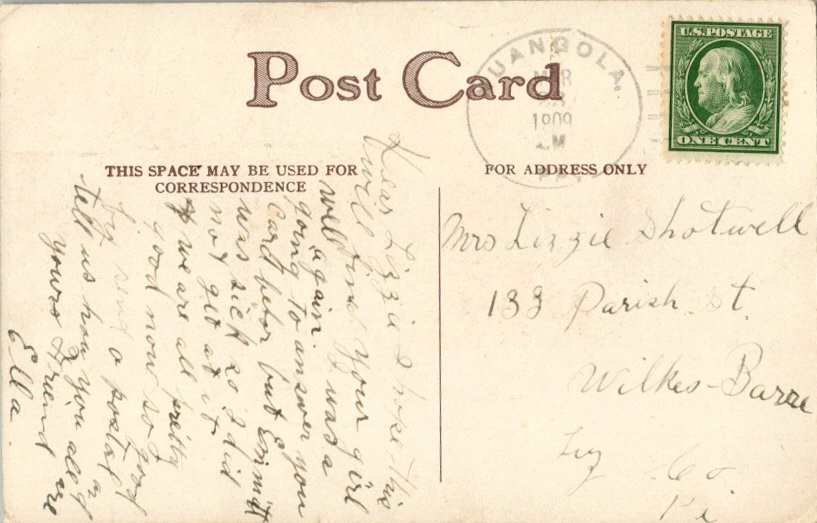 Post Card
NUANGOLA,
MAR
1909
M
PA.
U.S. POSTAGE
ONE CENT
THIS SPACE MAY BE USED FOR
CORRESPONDENCE
FOR ADDRESS ONLY
Dear Lizzie I hope this
will find your girl
well again. I was a
going to answer you
card befor but Emmitt
was sick so I did
not get at it
we are all pretty
good now so good
by send a postal
tell us how you all
yours Friend
Ella
Mrs Lizzie Shotwell
133 Parish St.
Wilkes-Barre
Luz Co.